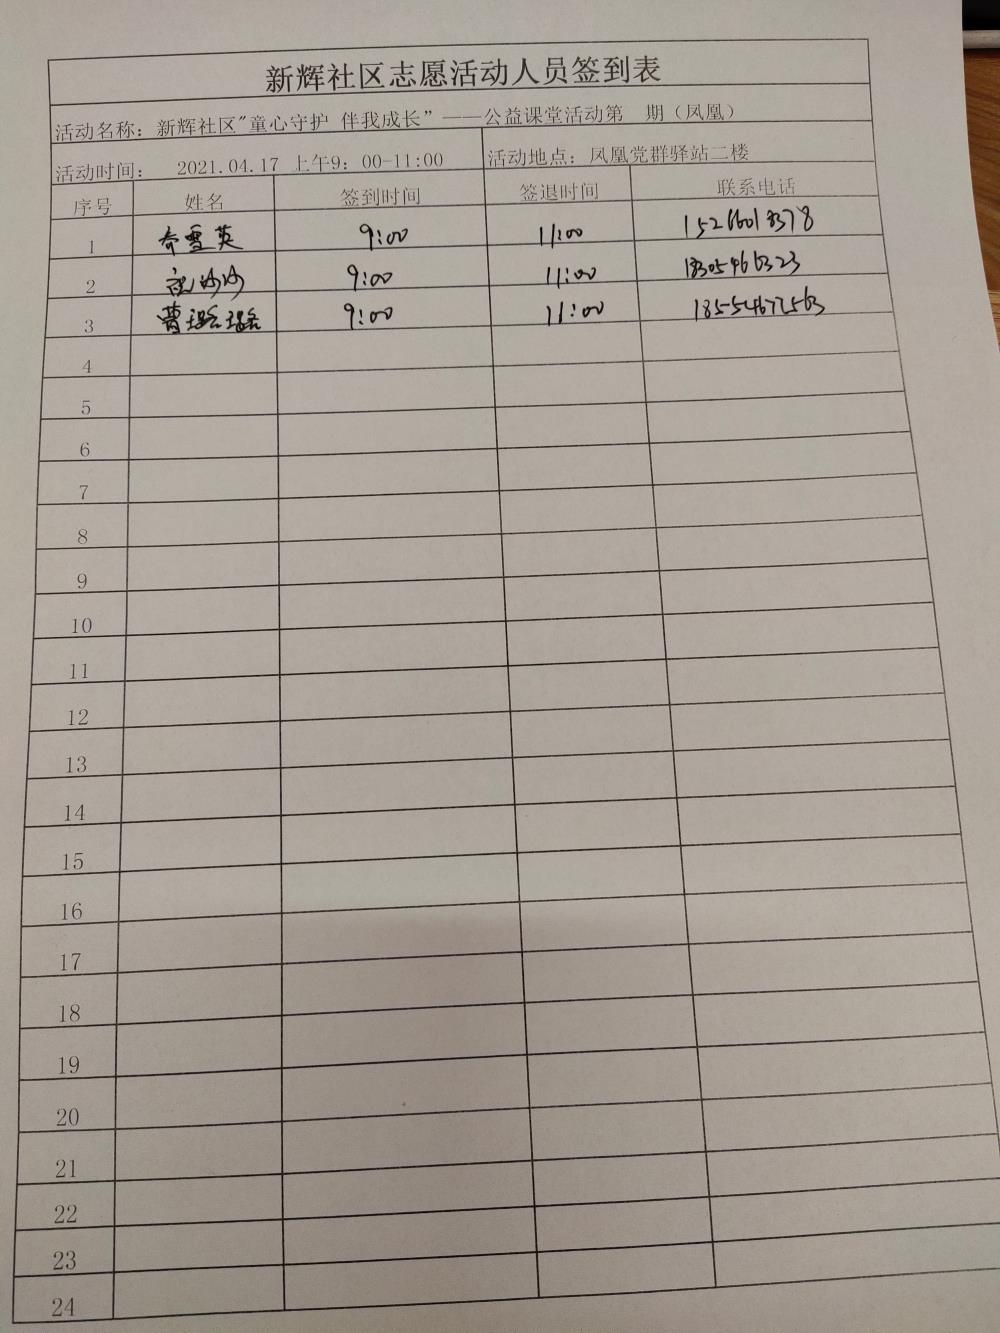 新辉社区志愿活动人员签到表
活动名称：新辉社区"童心守护 伴我成长”——公益课堂活动第 期（凤凰）
活动时间： 2021.04.17 上午9：00-11:00 活动地点：凤凰党群驿站二楼
序号 姓名 签到时间 签退时间 联系电话
1 乔雪英 9:00 11:00
2 祝沙沙 9:00 11:00 18305466323
3 曹瑶瑶 9:00 11:00 18554672563
4
5
6
7
8
9
10
11
12
13
14
15
16
17
18
19
20
21
22
23
24